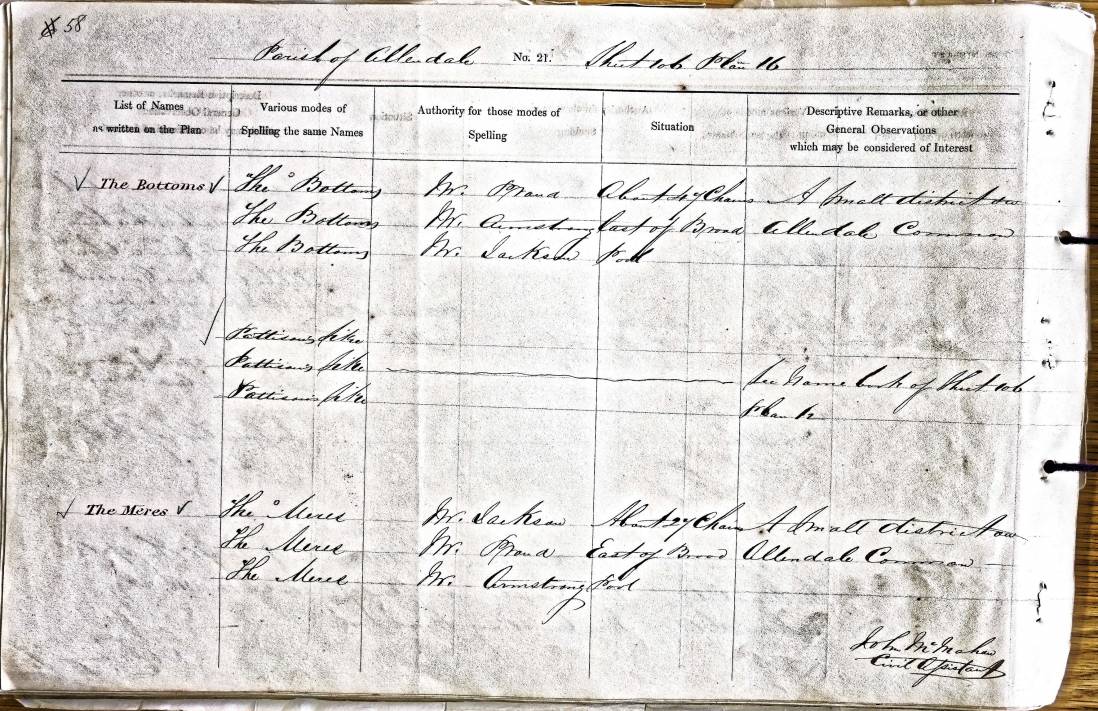 58
Parish of Allendale No. 21. Sheet 106 Plan 16
List of Names
as written on the Plan
Various modes of
Spelling the same Names
Authority for those modes of
Spelling
Situation
Descriptive Remarks, or other
General Observations
which may be considered of Interest
The Bottoms "The" Bottoms Mr. Proud About 47 Chains A Small district on
The Bottoms Mr. Armstrong East of Broad Allendale Common
The Bottoms Mr. Jackson Pool
Pattisons Sike
Pattisons Sike See Name book of Sheet 106
Pattisons Sike Plan 12
The Meres "The" Meres Mr. Jackson About 27 Chains A Small district on
The Meres Mr. Proud East of Broad Allendale Common
The Meres Mr. Armstrong Pool
John McMahon
Civil Assistant